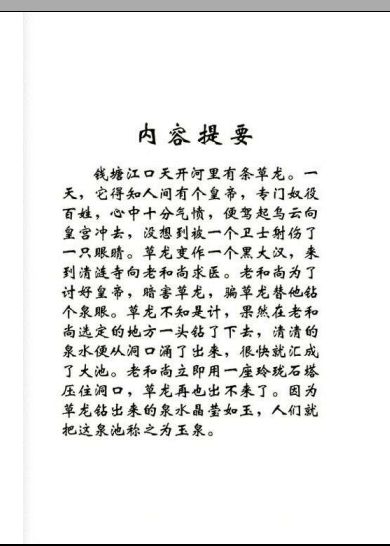 内容提要
钱塘江口天开河里有条草龙。一
天，它得知人间有个皇帝，专门奴役
百姓，心中十分气愤，便驾起乌云向
皇宫冲去，没想到被一个卫士射伤了
一只眼睛。草龙变作一个黑大汉，来
到清涟寺向老和尚求医。老和尚为了
讨好皇帝，暗害草龙，骗草龙替他钻
个泉眼。草龙不知是计，果然在老和
尚选定的地方一头钻了下去，清清的
泉水便从洞口涌了出来，很快就汇成
了大池。老和尚立即用一座玲珑石塔
压住洞口，草龙再也出不来了。因为
草龙钻出来的泉水晶莹如玉，人们就
把这泉池称之为玉泉。